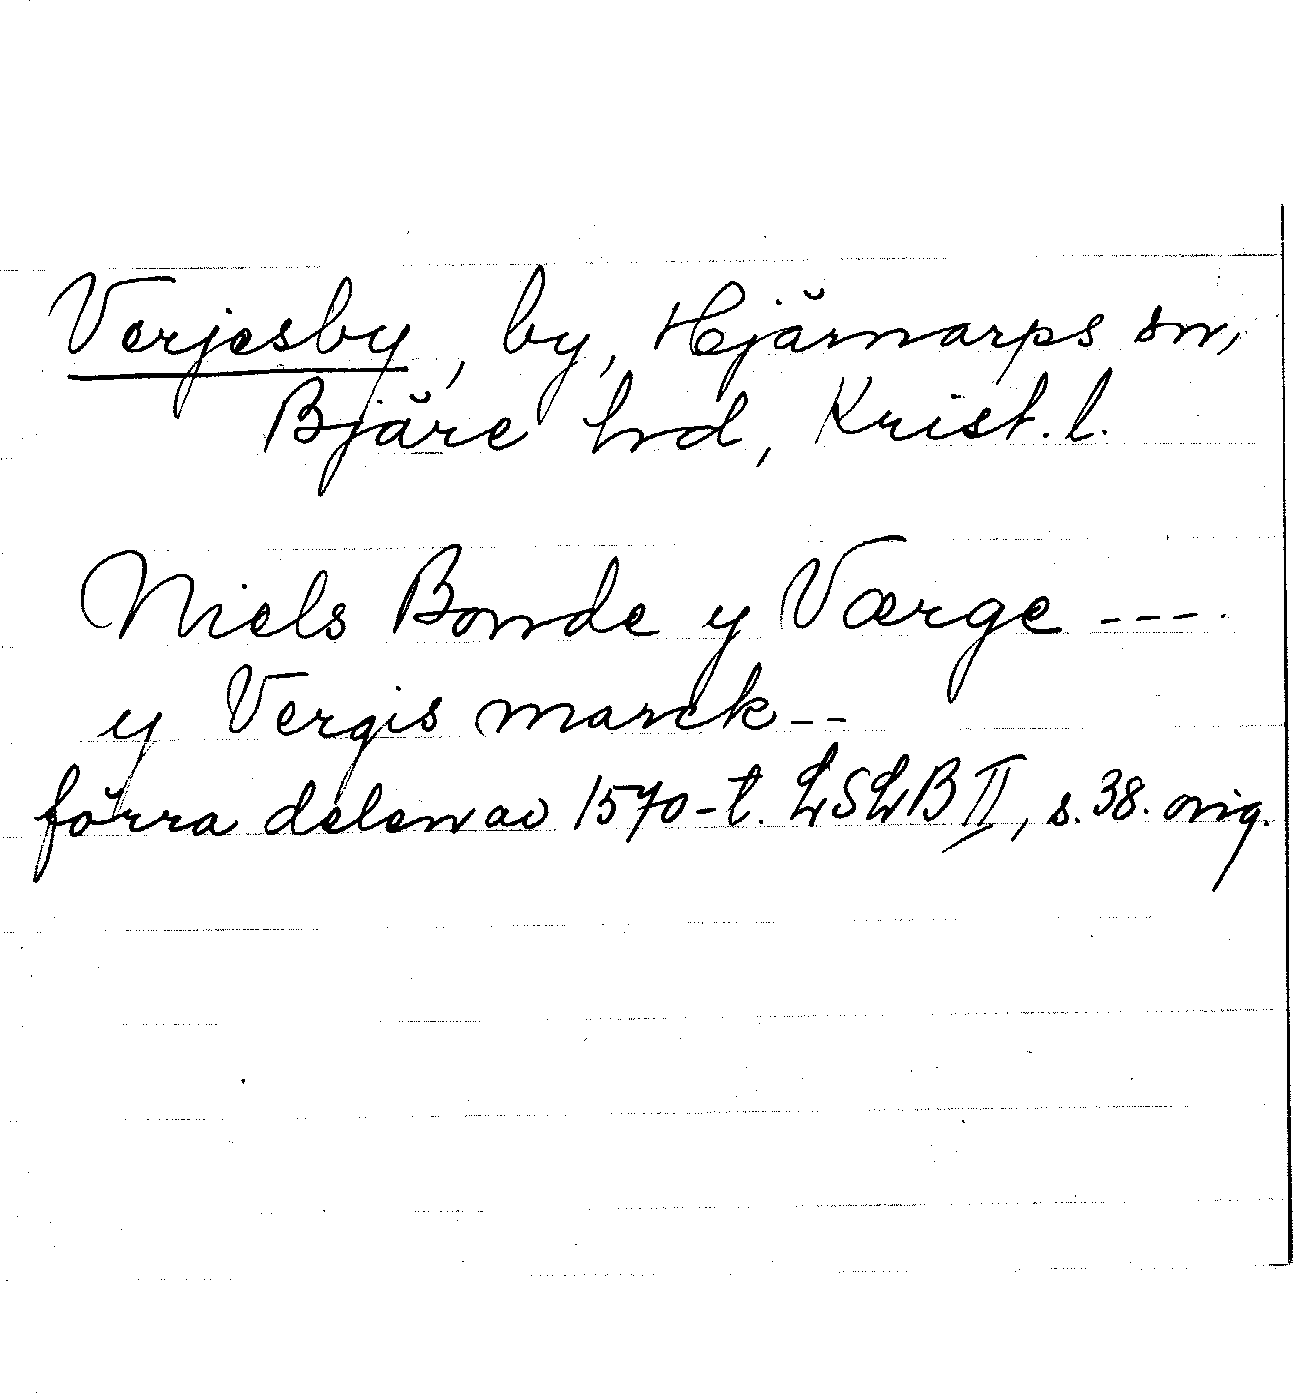 Verjesby, by, Hjärnarps sn,
Bjäre hrd, Krist. l.
Niels Bonde y Værge ----
y Vergis marck --
förra delen av 1570-t. LSLB II, s. 38. orig.